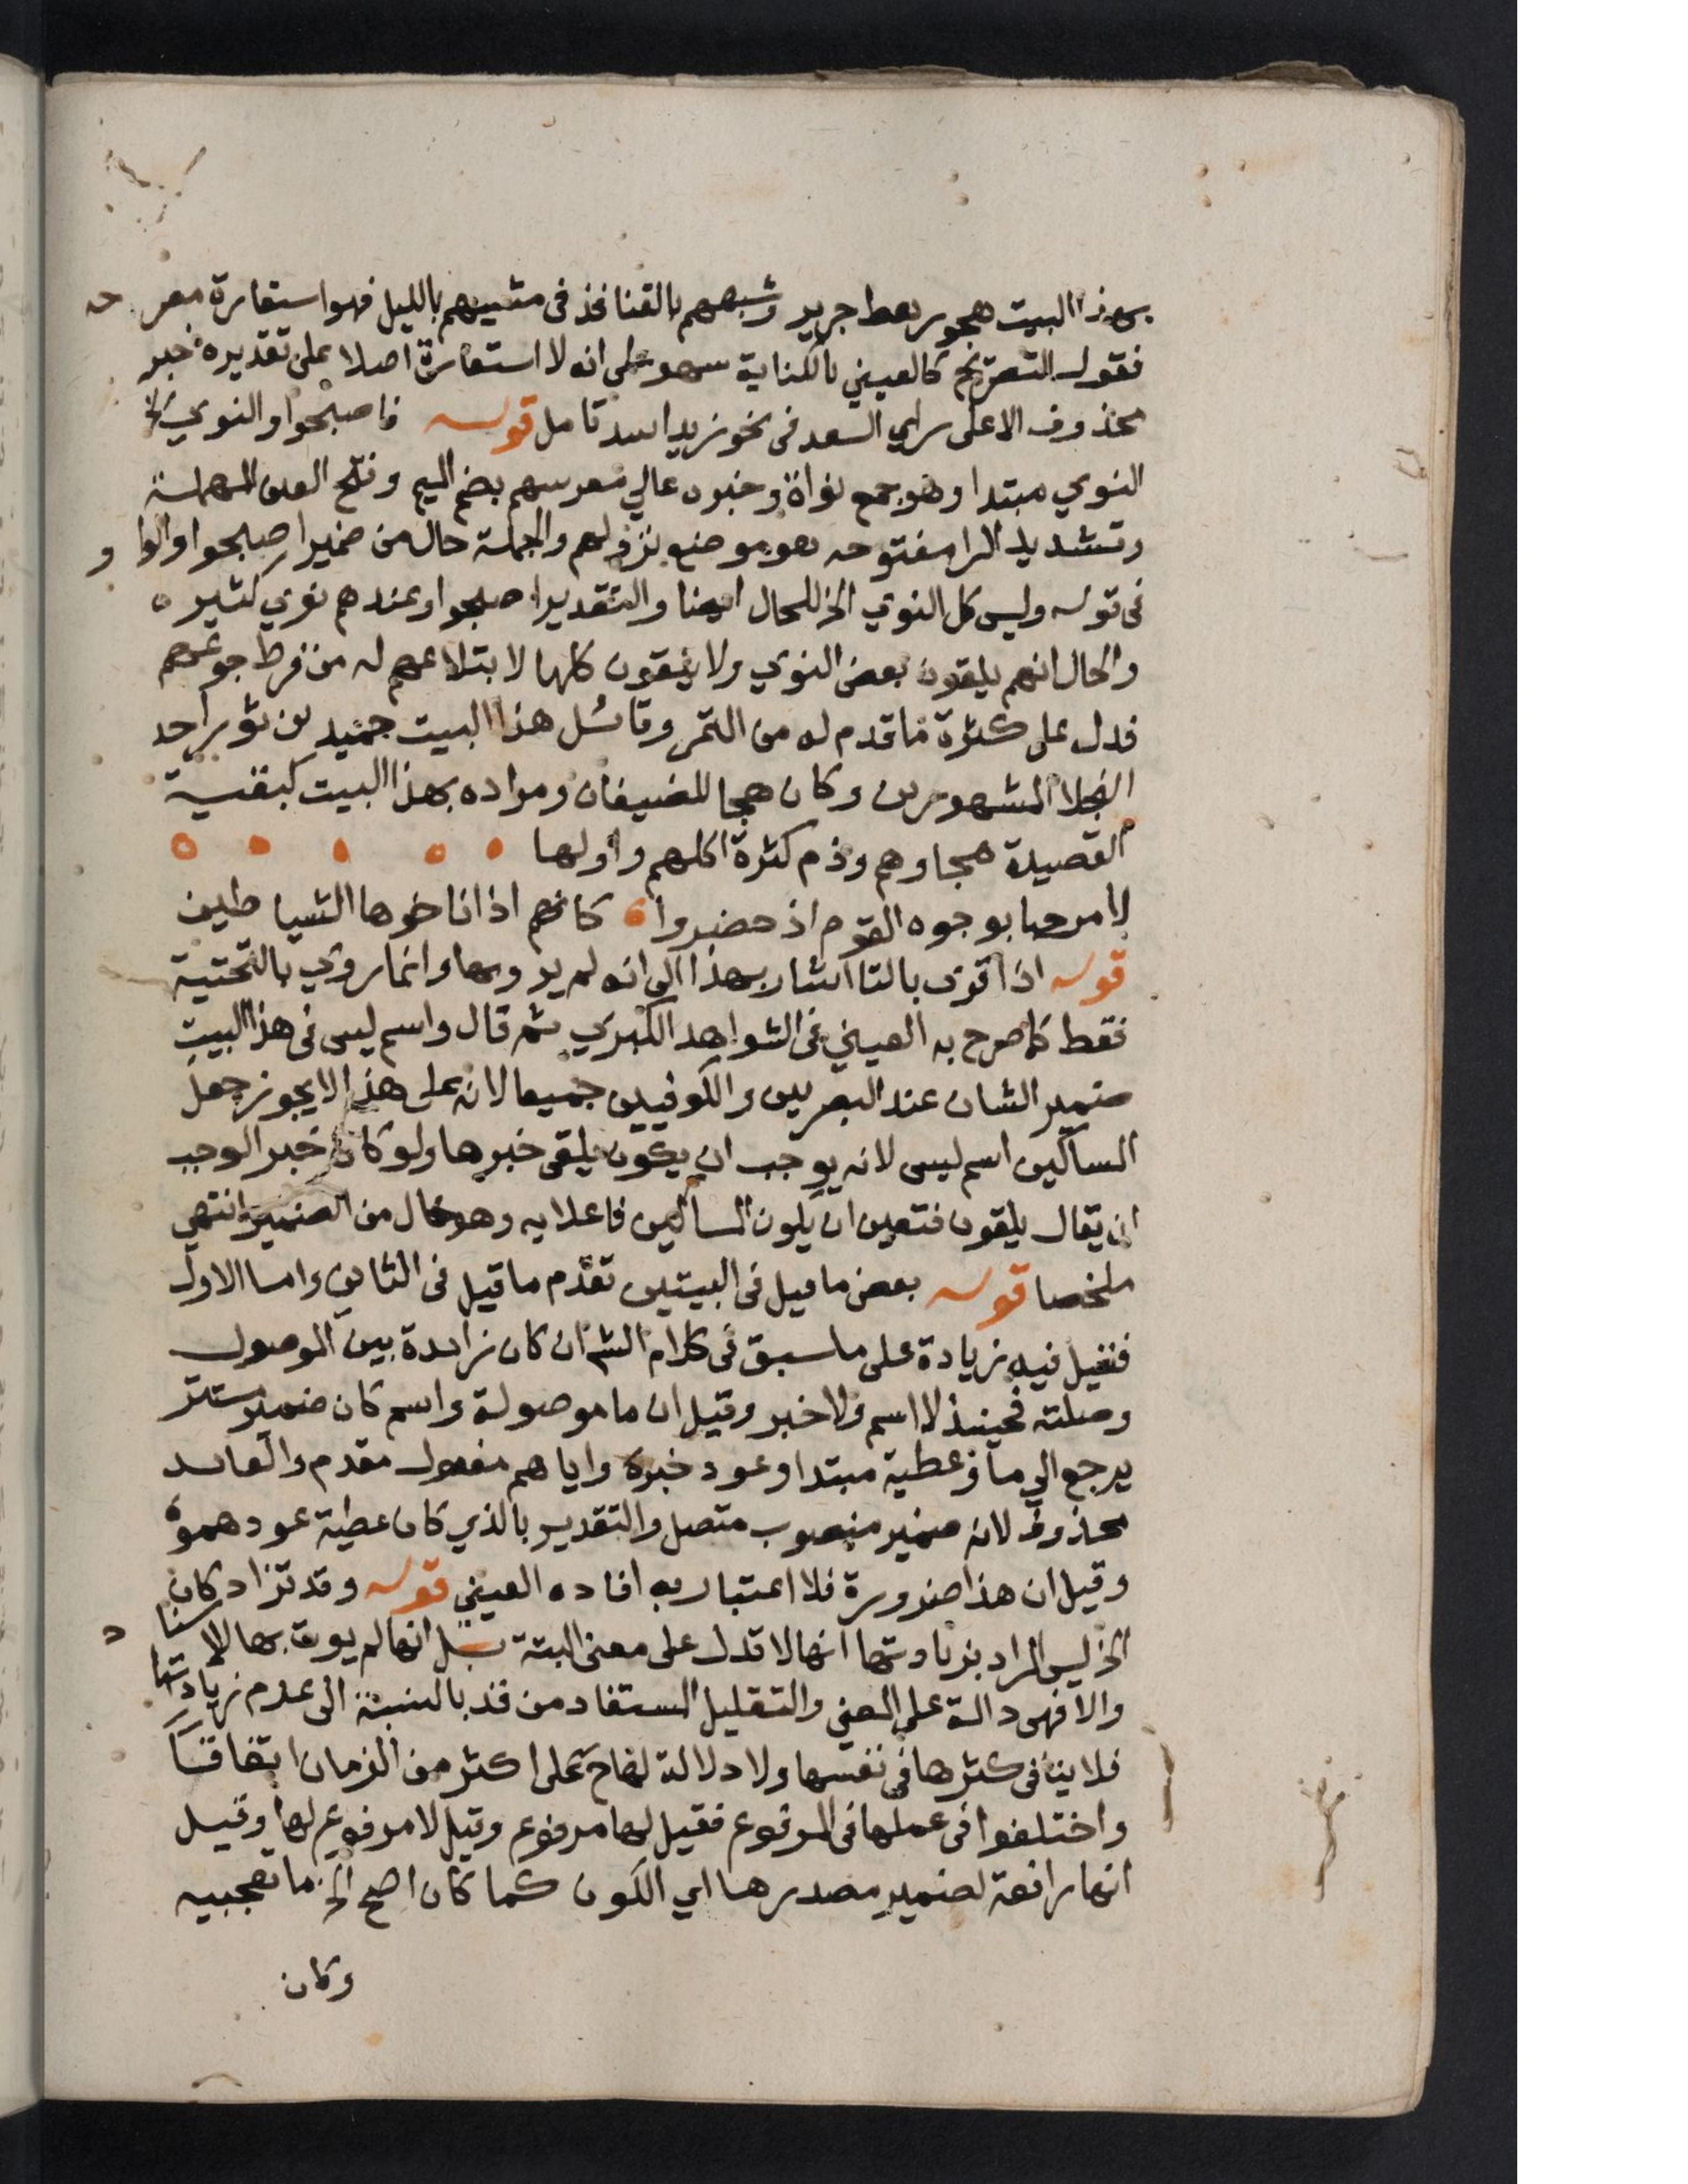 بهذا البيت هجو رهط جرير وشبههم بالقنافذ فى مشيهم بالليل فهو استعارة مصرحه
فقول التصريح كالعيني بالكناية سهو على انه لا استعارة اصلا على تقديره خبر
محذوف الا على راى السعد فى نحو زيد اسد تامل قوله فاصبحوا والنوي الخ
النوي مبتدا وهو جمع نواة وخبره عالي معرسهم بضم الميم وفتح العين المهملة
وتشديد الرا مفتوحه هو موضع نزولهم والجملة حال من ضمير اصبحوا والواو
فى قوله وليس كل النوي الخ للحال ايضا والتقدير اصبحوا وعندهم نوي كثيره
والحال انهم يلقون بعض النوي ولا يلقون كلها لابتلاعهم له من فرط جوعهم
فدل على كثرة ما قدم له من التمر وقائل هذا البيت حميد بن ثور احد
البخلا المشهورين وكان هجا للضيفان ومراده بهذا البيت كبقية
القصيدة هجاوهم وذم كثرة اكلهم واولها
لا مرحبا بوجوه القوم اذ حضروا كانهم اذ اناخوها الشياطين
قوله اذا قرئ بالتا اشار بهذا الى انه لم يروبها وانما روي بالتحتية
فقط كما صرح به العيني فى الشواهد الكبري ثم قال واسم ليس فى هذا البيت
ضمير الشان عند البصريين والكوفيين جميعا لانه على هذا لا يجوز جعل
المساكين اسم ليس لانه يوجب ان يكون يلقى خبرها ولو كان خبرا لوجب
ان يقال يلقون فتعين ان يكون المساكين فاعلا به وهو خال من الضمير انتهي
ملخصا قوله بعض ما قيل فى البيتين تقدم ما قيل فى الثاني واما الاول
فقيل فيه زيادة على ما سبق فى كلام الش ان كان زايدة بين الموصول
وصلته فحينئذ لا اسم ولا خبر وقيل ان ما موصولة واسم كان ضمير مستتر
يرجع الى ما وعطية مبتدا وعود خبره واياهم مفعول مقدم والعايد
محذوف لانه ضمير منصوب متصل والتقدير بالذي كان عطية عود هموه
وقيل ان هذا ضرورة فلا اعتبار به افاده العيني قوله وقد تزاد كان
الخ ليس المراد بزيادتها انها لا تدل على معنى البتة بل انها لم يوت بها للاسناد
والا فهى دالة على المعني والتقليل المستفاد من قد بالنسبة الى عدم زيادتها
فلا ينافى كثرتها فى نفسها ولا دلالة لها ح على اكثر من الزمان اتفاقا
واختلفوا فى عملها فى المرفوع فقيل لها مرفوع وقيل لا مرفوع لها وقيل
انها رافعة لضمير مصدرها اي الكون كما كان اصح الخ ما تعجبيه
وكان